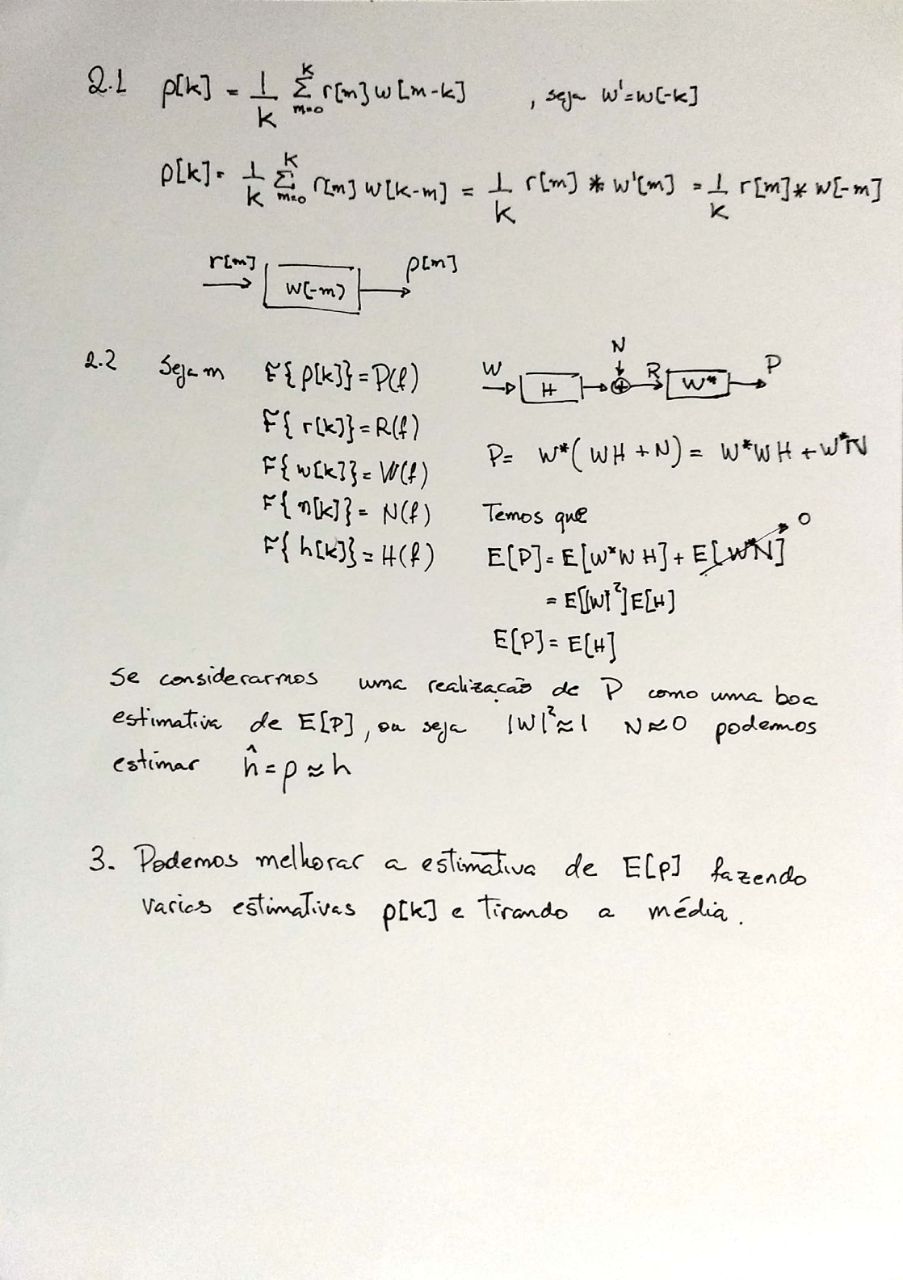 2.1 ρ[k] = 1/K Σ_{m=0}^{K} r[m] w[m-k] , seja w'=w[-k]
ρ[k] = 1/K Σ_{m=0}^{K} r[m] w[k-m] = 1/K r[m] * w'[m] = 1/K r[m] * w[-m]
r[m] w[-m] ρ[m]
2.2 Sejam F{ρ[k]}=P(f)
F{r[k]}=R(f)
F{w[k]}=W(f)
F{n[k]}=N(f)
F{h[k]}=H(f)
W H + N R W* P
P= W*(WH+N) = W*WH+W*N
Temos que
E[P]=E[W*WH]+E[W*N] 0
=E[|W|²]E[H]
E[P]=E[H]
Se considerarmos uma realização de P como uma boa
estimativa de E[P], ou seja |W|²≈1 N≈0 podemos
estimar ĥ=ρ≈h
3. Podemos melhorar a estimativa de E[ρ] fazendo
varias estimativas ρ[k] e tirando a média.